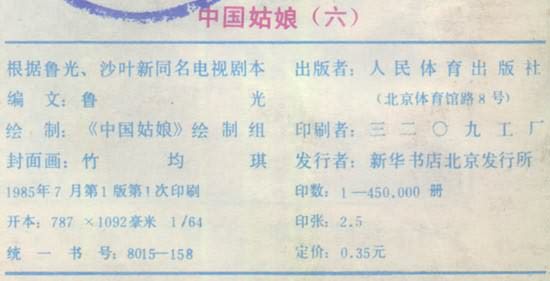 中国姑娘（六）
根据鲁光、沙叶新同名电视剧本
编文：鲁光
绘制：《中国姑娘》绘制组
封面画：竹均琪
1985年7月第1版第1次印刷
开本：787×1092毫米 1/64
统一书号：8015—158
出版者：人民体育出版社
（北京体育馆路8号）
印刷者：三二〇九工厂
发行者：新华书店北京发行所
印数：1—450,000 册
印张：2.5
定价：0.35元